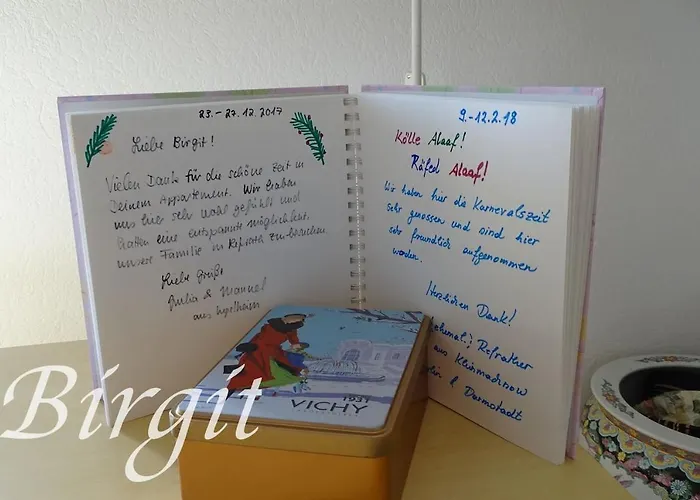 23.-27.12.2017
Liebe Birgit!
Vielen Dank für die schöne Zeit in
Deinem Appartement. Wir haben
uns hier sehr wohl gefühlt und
hatten eine entspannte Möglichkeit,
unsere Familie in Refrath zu besuchen.
Liebe Grüße
Giulia & Manuel
aus
9.-12.2.18
Kölle Alaaf!
Räfed Alaaf!
Wir haben hier die Karnevalszeit
sehr genossen und sind hier
sehr freundlich aufgenommen
worden.
Herzlichen Dank!
ehemal.) Refrather
aus Kleinmachnow
& Darmstadt
1931
VICHY
Birgit